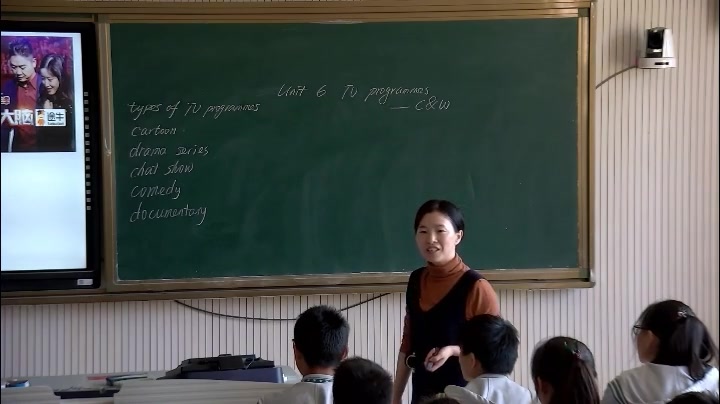 Unit 6 TV programmes
— C&W
types of TV programmes
cartoon
drama series
chat show
comedy
documentary
大脑
途牛